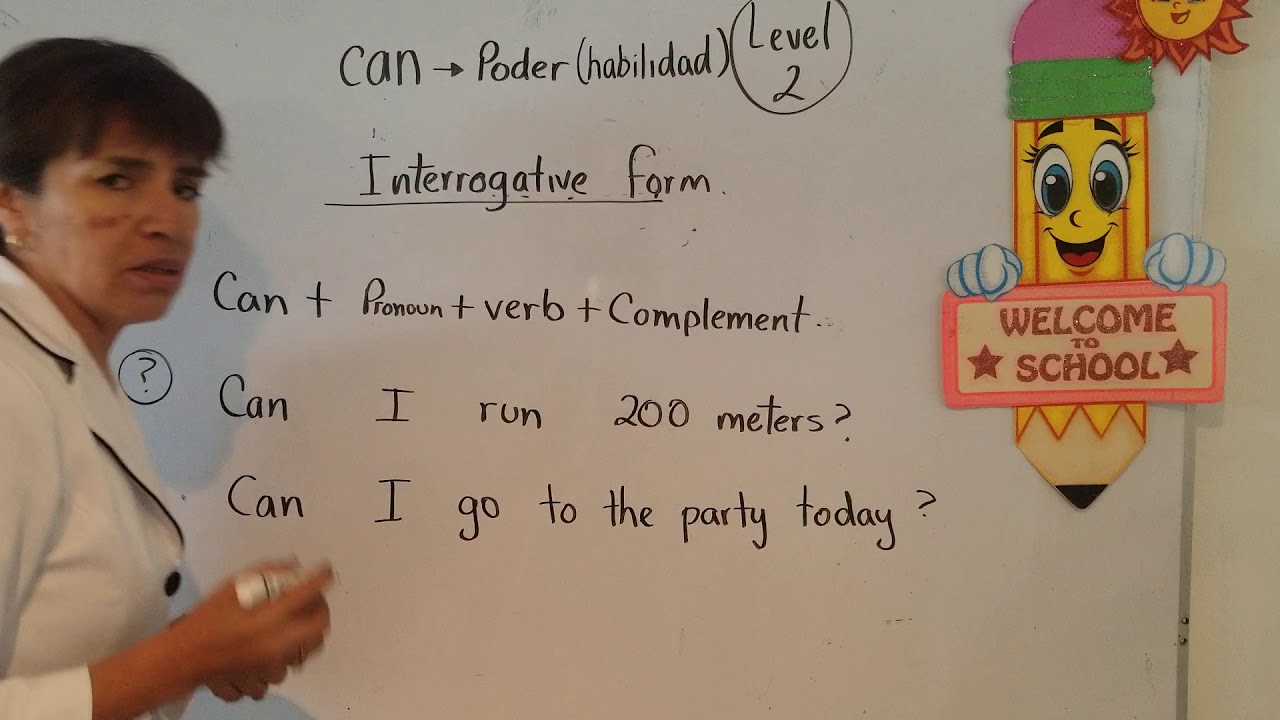 can → Poder (habilidad) Level 2
Interrogative form.
Can + Pronoun + verb + Complement..
? Can I run 200 meters?
Can I go to the party today?
WELCOME
TO
SCHOOL